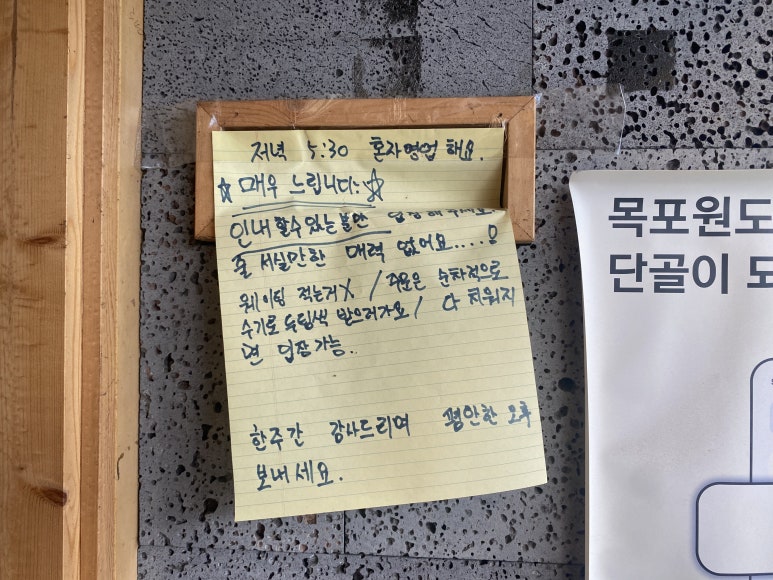 저녁 5:30 혼자영업 해요.
☆매우 느립니다.☆
인내 할수있는 분만 입장해주세요
줄 서실만한 매력 없어요....!
웨이팅 적는거X / 주문은 순차적으로
수기로 독립색 받으러가요 / 다 치워지
면 입장가능.
한주간 감사드리며 평안한 오후
보내세요.
목포원도
단골이 되